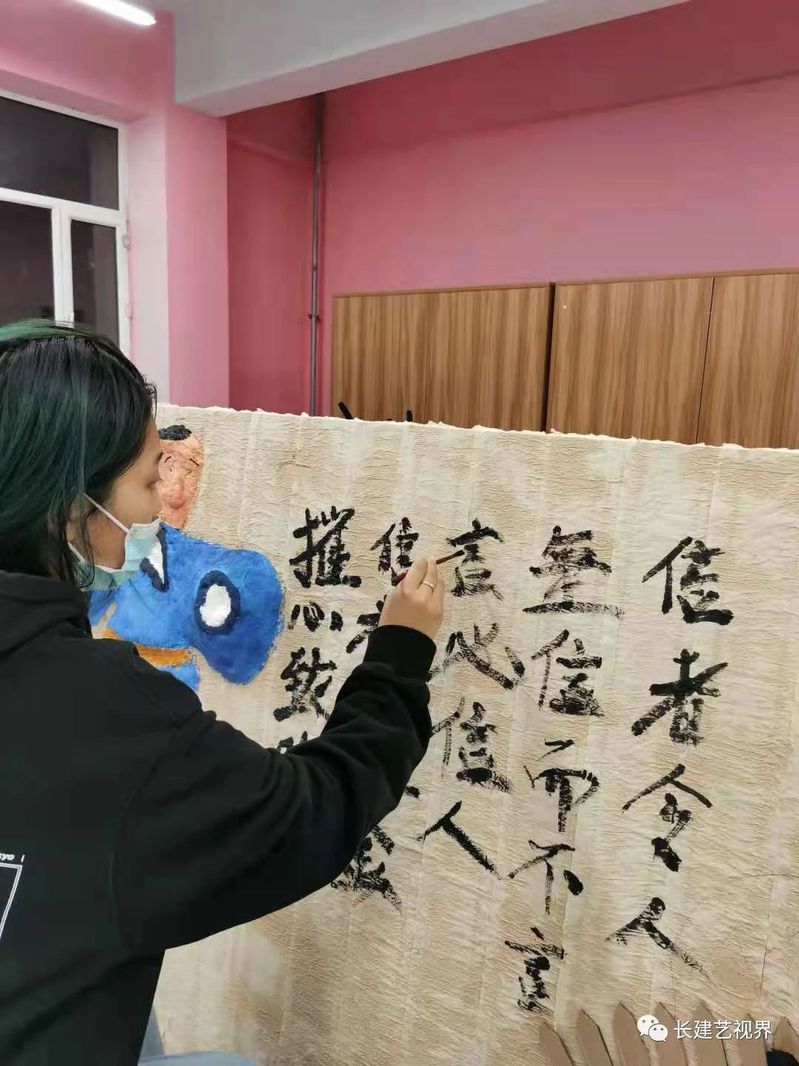 信者令人
無信而不言
言必信人
信
摧心致
长建艺视界